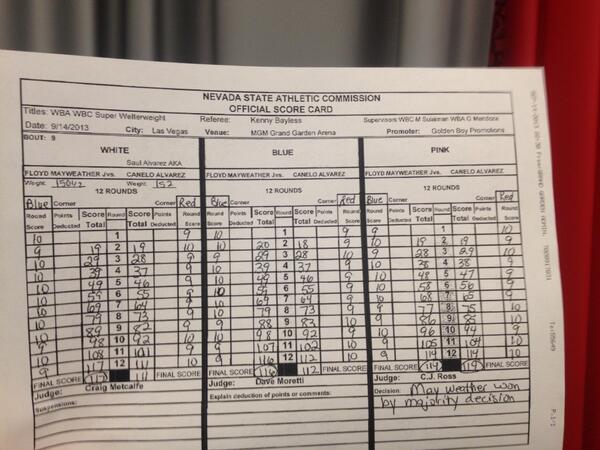 NEVADA STATE ATHLETIC COMMISSION
OFFICIAL SCORE CARD
Titles: WBA WBC Super Welterweight Referee: Kenny Bayless Supervisors: WBC M Sulaiman WBA G Mendoza
Date: 9/14/2013 City: Las Vegas Venue: MGM Grand Garden Arena Promoter: Golden Boy Promotions
BOUT: 9
WHITE BLUE PINK
Saul Alvarez AKA
FLOYD MAYWEATHER Jvs. CANELO ALVAREZ FLOYD MAYWEATHER Jvs. CANELO ALVAREZ FLOYD MAYWEATHER Jvs. CANELO ALVAREZ
Weight: 150 1/2 Weight: 152
12 ROUNDS 12 ROUNDS 12 ROUNDS
Blue Corner Corner Red Blue Corner Corner Red Blue Corner Corner Red
Round Points Score Round Score Points Round Round Points Score Round Score Points Round Round Points Score Round Score Points Round
Score Deducted Total Total Deducted Score Score Deducted Total Total Deducted Score Score Deducted Total Total Deducted Score
10 1 9 10 1 9 9 1 10
9 19 2 19 10 10 20 2 18 9 10 19 2 19 9
10 29 3 28 9 9 29 3 28 10 9 28 3 29 10
10 39 4 37 9 10 39 4 37 9 10 38 4 38 9
10 49 5 46 9 10 49 5 46 9 10 48 5 47 9
10 59 6 55 9 10 59 6 55 9 10 58 6 56 9
10 69 7 64 9 10 69 7 64 9 10 68 7 65 9
10 79 8 73 9 10 79 8 73 9 9 77 8 75 10
10 89 9 82 9 9 88 9 83 10 9 86 9 85 10
9 98 10 92 10 10 98 10 92 9 10 96 10 94 9
10 108 11 101 9 9 107 11 102 10 9 105 11 104 10
9 117 12 111 10 9 116 12 112 10 9 114 12 114 10
FINAL SCORE 117 111 FINAL SCORE FINAL SCORE 116 112 FINAL SCORE FINAL SCORE 114 114 FINAL SCORE
Judge: Craig Metcalfe Judge: Dave Moretti Judge: C.J. Ross
Suspensions: Explain deduction of points or comments: Decision: Mayweather won
by majority decision
P.1/1